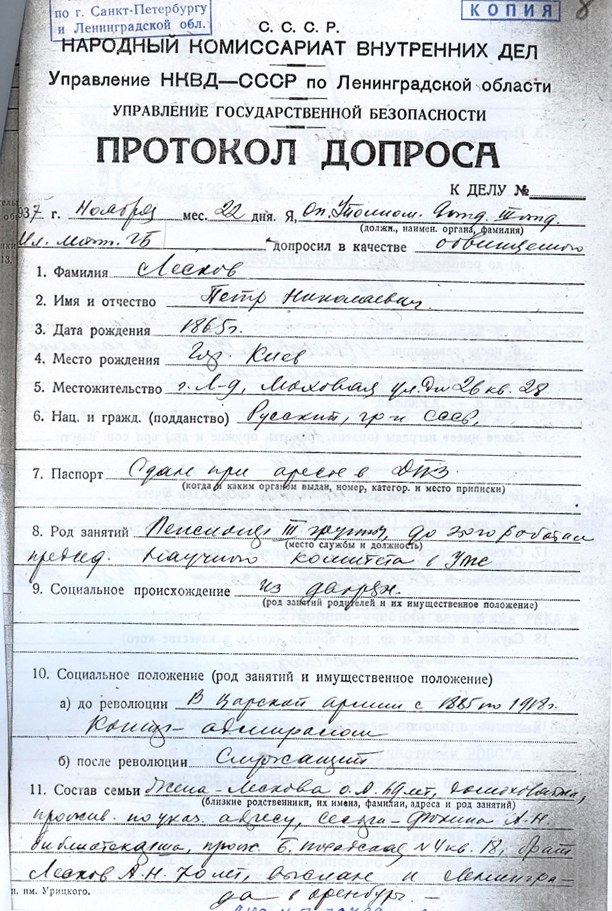 по г. Санкт-Петербургу
и Ленинградской обл.
КОПИЯ
8
С. С. С. Р.
НАРОДНЫЙ КОМИССАРИАТ ВНУТРЕННИХ ДЕЛ
Управление НКВД—СССР по Ленинградской области
УПРАВЛЕНИЕ ГОСУДАРСТВЕННОЙ БЕЗОПАСНОСТИ
ПРОТОКОЛ ДОПРОСА
К ДЕЛУ №
937 г. Ноября мес. 22 дня. Я, Оп.
(должн., наимен. органа, фамилия)
ГБ допросил в качестве обвиняемого
1. Фамилия Лесков
2. Имя и отчество Петр Николаевич.
3. Дата рождения 1865 г.
4. Место рождения Гор. Киев
5. Местожительство г. Л-д, Моховая ул. Дм 26 кв. 28
6. Нац. и гражд. (подданство) Русский, гр-н СССР,
7. Паспорт Сдан при аресте в ДПЗ.
(когда и каким органом выдан, номер, категор. и место приписки)
8. Род занятий Пенсионер III группы, до этого работал
(место службы и должность)
председ. Научного комитета в
9. Социальное происхождение из дворян.
(род занятий родителей и их имущественное положение)
10. Социальное положение (род занятий и имущественное положение)
а) до революции В царской армии с 1885 по 1918 г.
Контр-адмиралом
б) после революции Служащий
11. Состав семьи Жена - Лескова О. Л. лет, домохозяйка,
(близкие родственники, их имена, фамилии, адреса и род занятий)
прожив. по указ. адресу, сестра - А. Н.
библиотекарша, прож. Б. Посадская № 4 кв. 18, брат
Лесков А. Н. выслан из Ленингра-
да в Оренбург. —
п. им. Урицкого.